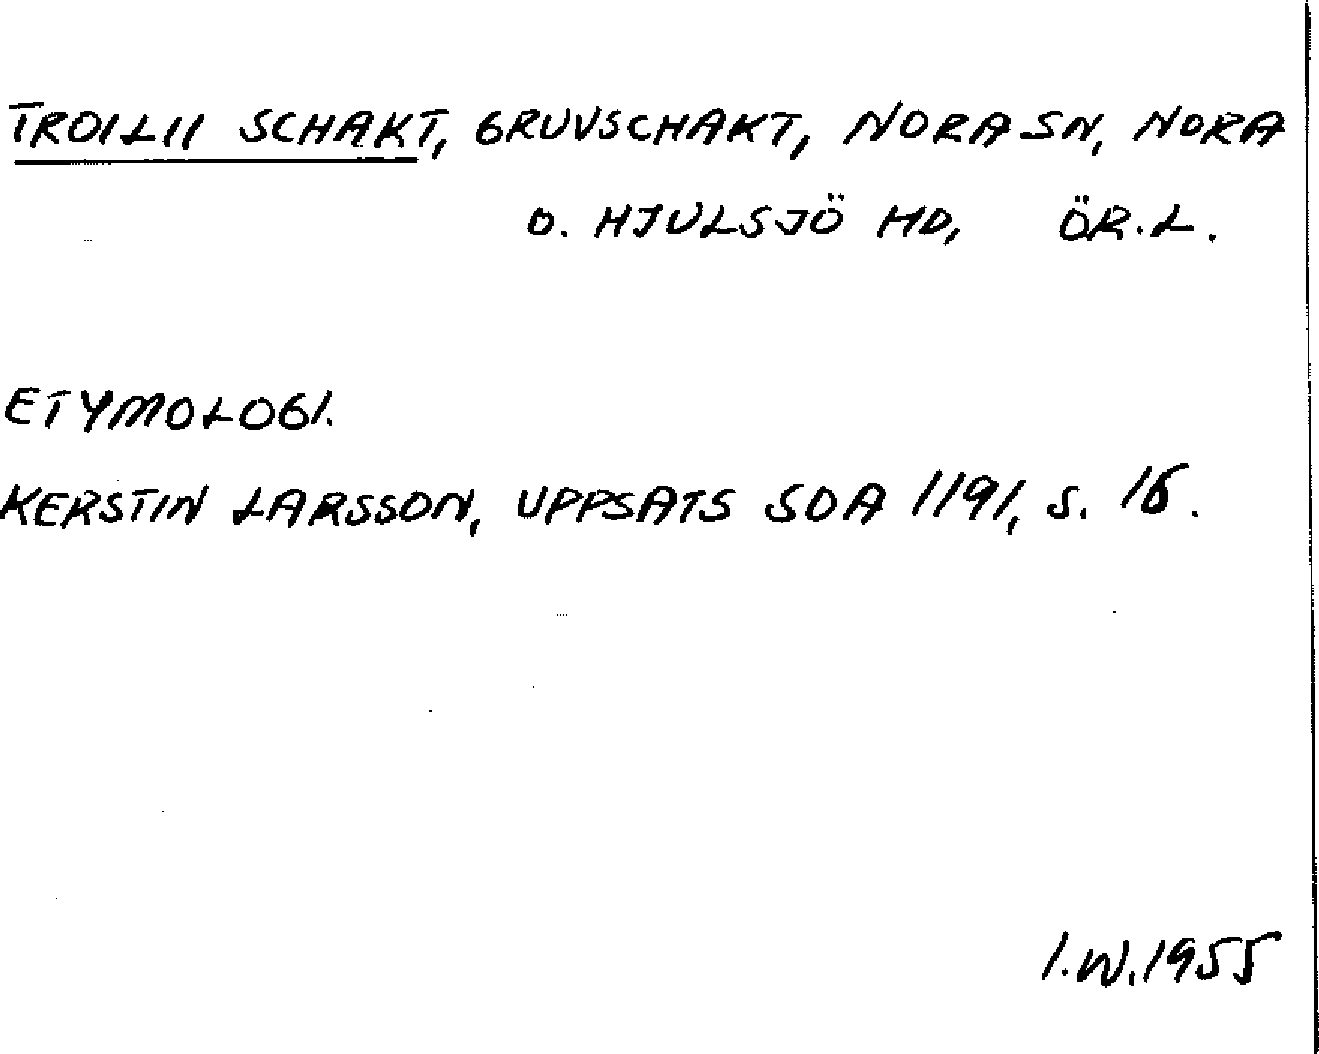 TROILII SCHAKT, GRUVSCHAKT, NORA SN, NORA
O. HJULSJÖ MD, ÖR.L.
ETYMOLOGI.
KERSTIN LARSSON, UPPSATS SOA 1191, S. 16.
I.W.1955